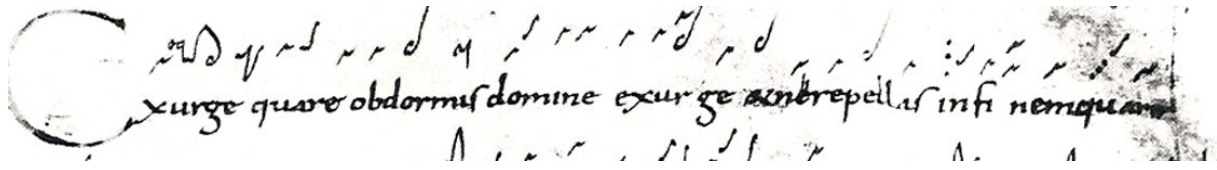 Exurge quare obdormis domine exur ge et ne repellas in fi nem quare